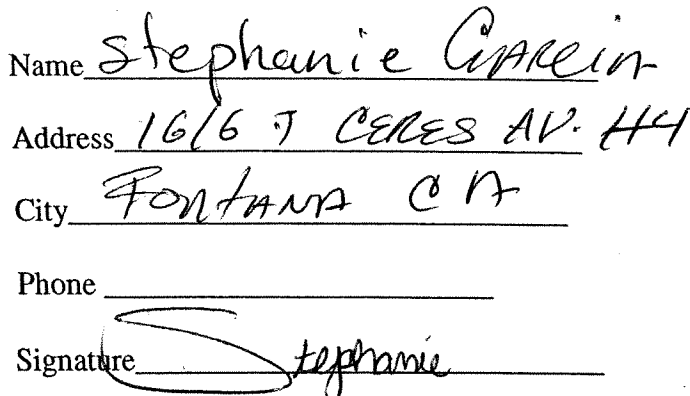 Name Stephanie Garcia
Address 16/6 J CERES AV. H4
City FONTANA CA
Phone
Signature Stephanie